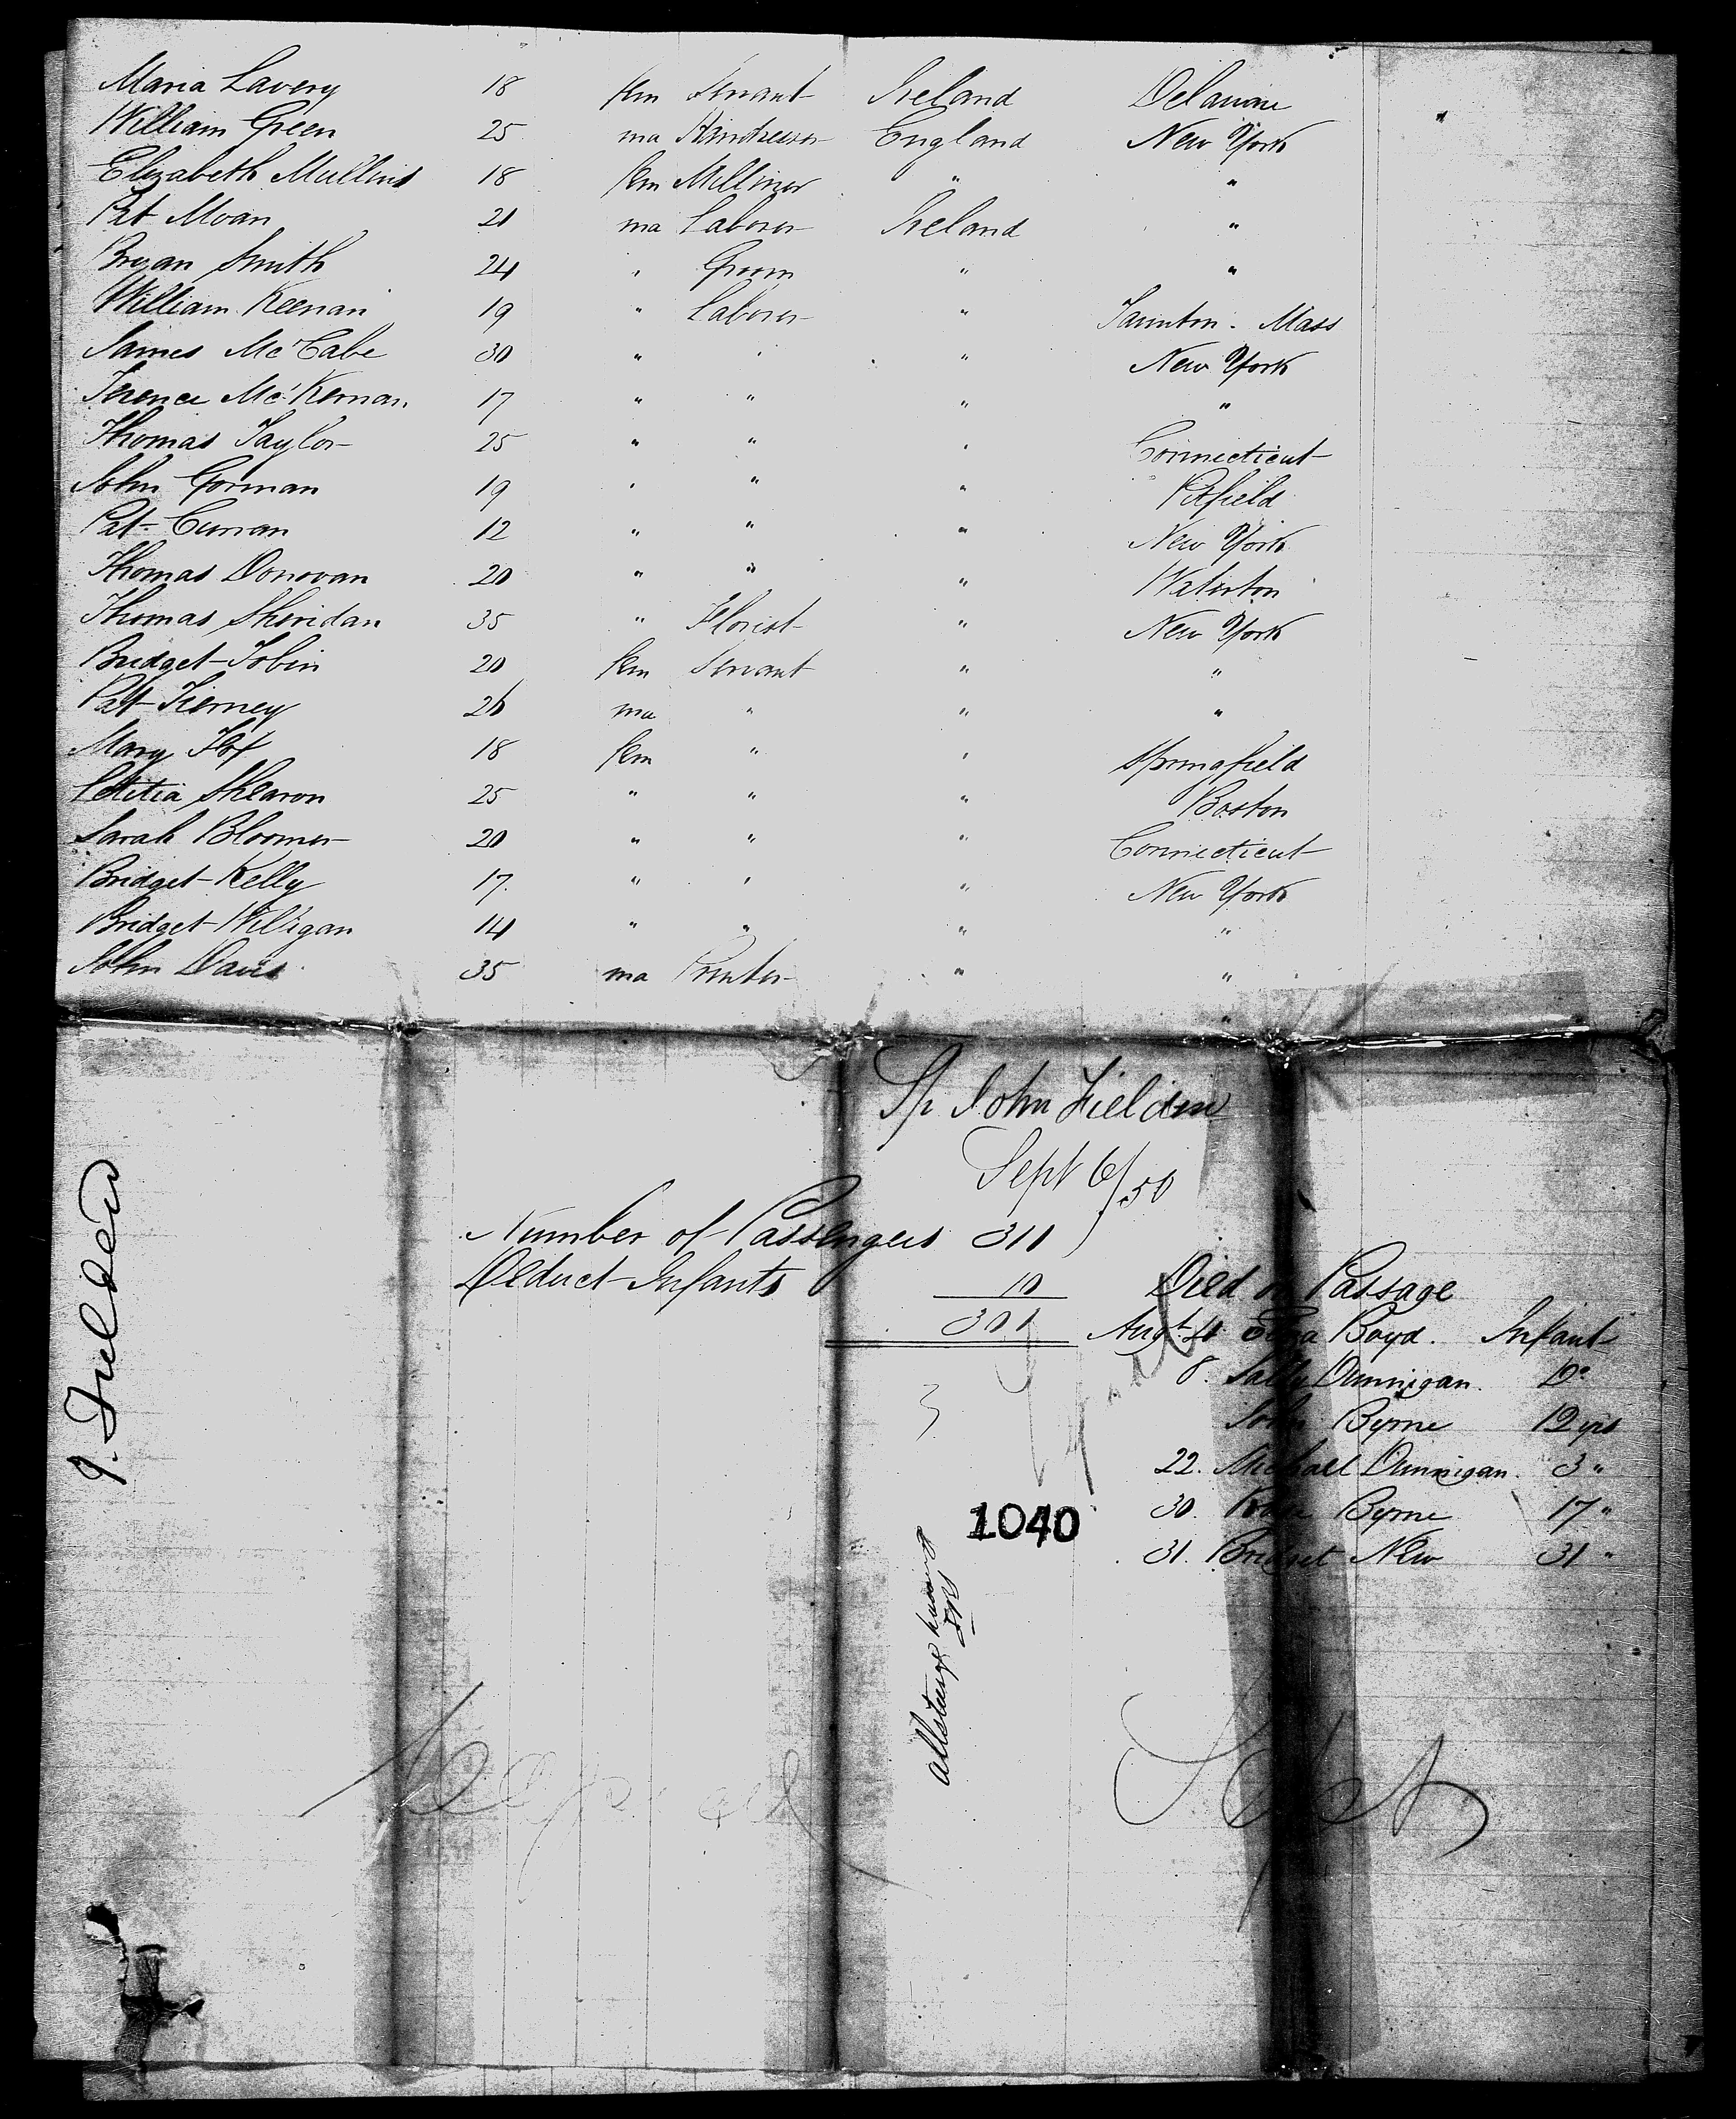 Maria Lavery 18 fem Servant Ireland Delaware
William Green 25 ma England New York
Elizabeth Mullins 18 fem Milliner " "
Pat Moan 21 ma Laborer Ireland "
Bryan Smith 24 " Groom " "
William Keenan 19 " Laborer " Taunton. Mass
James McCabe 30 " " " New York
Terence McKernan 17 " " " "
Thomas Taylor 25 " " " Connecticut
John Gorman 19 " " " Pitfield
Pat Curran 12 " " " New York
Thomas Donovan 20 " " " Waterton
Thomas Sheridan 35 " Florist " New York
Bridget Tobin 20 fem Servant " "
Pat Tierney 26 ma " " "
Mary Fox 18 fem " " Springfield
Letitia Shearon 25 " " " Boston
Sarah Bloomer 20 " " " Connecticut
Bridget Kelly 17. " " " New York
Bridget Willigan 14 " " " "
John Davis 35 ma Printer " "
"
Sp John Fielden
Sept 6/50
Number of Passengers 311
Deduct Infants 10
301
J. Fielden
Died on Passage
Augt 4 Eliza Boyd. Infant
8. Sally Dunnigan. Do
John Byrne 12 yrs
22. Michael Dunnigan. 3 "
30. Byrne 17 "
31. Bridget New 31 "
1040
All steerage
Sept